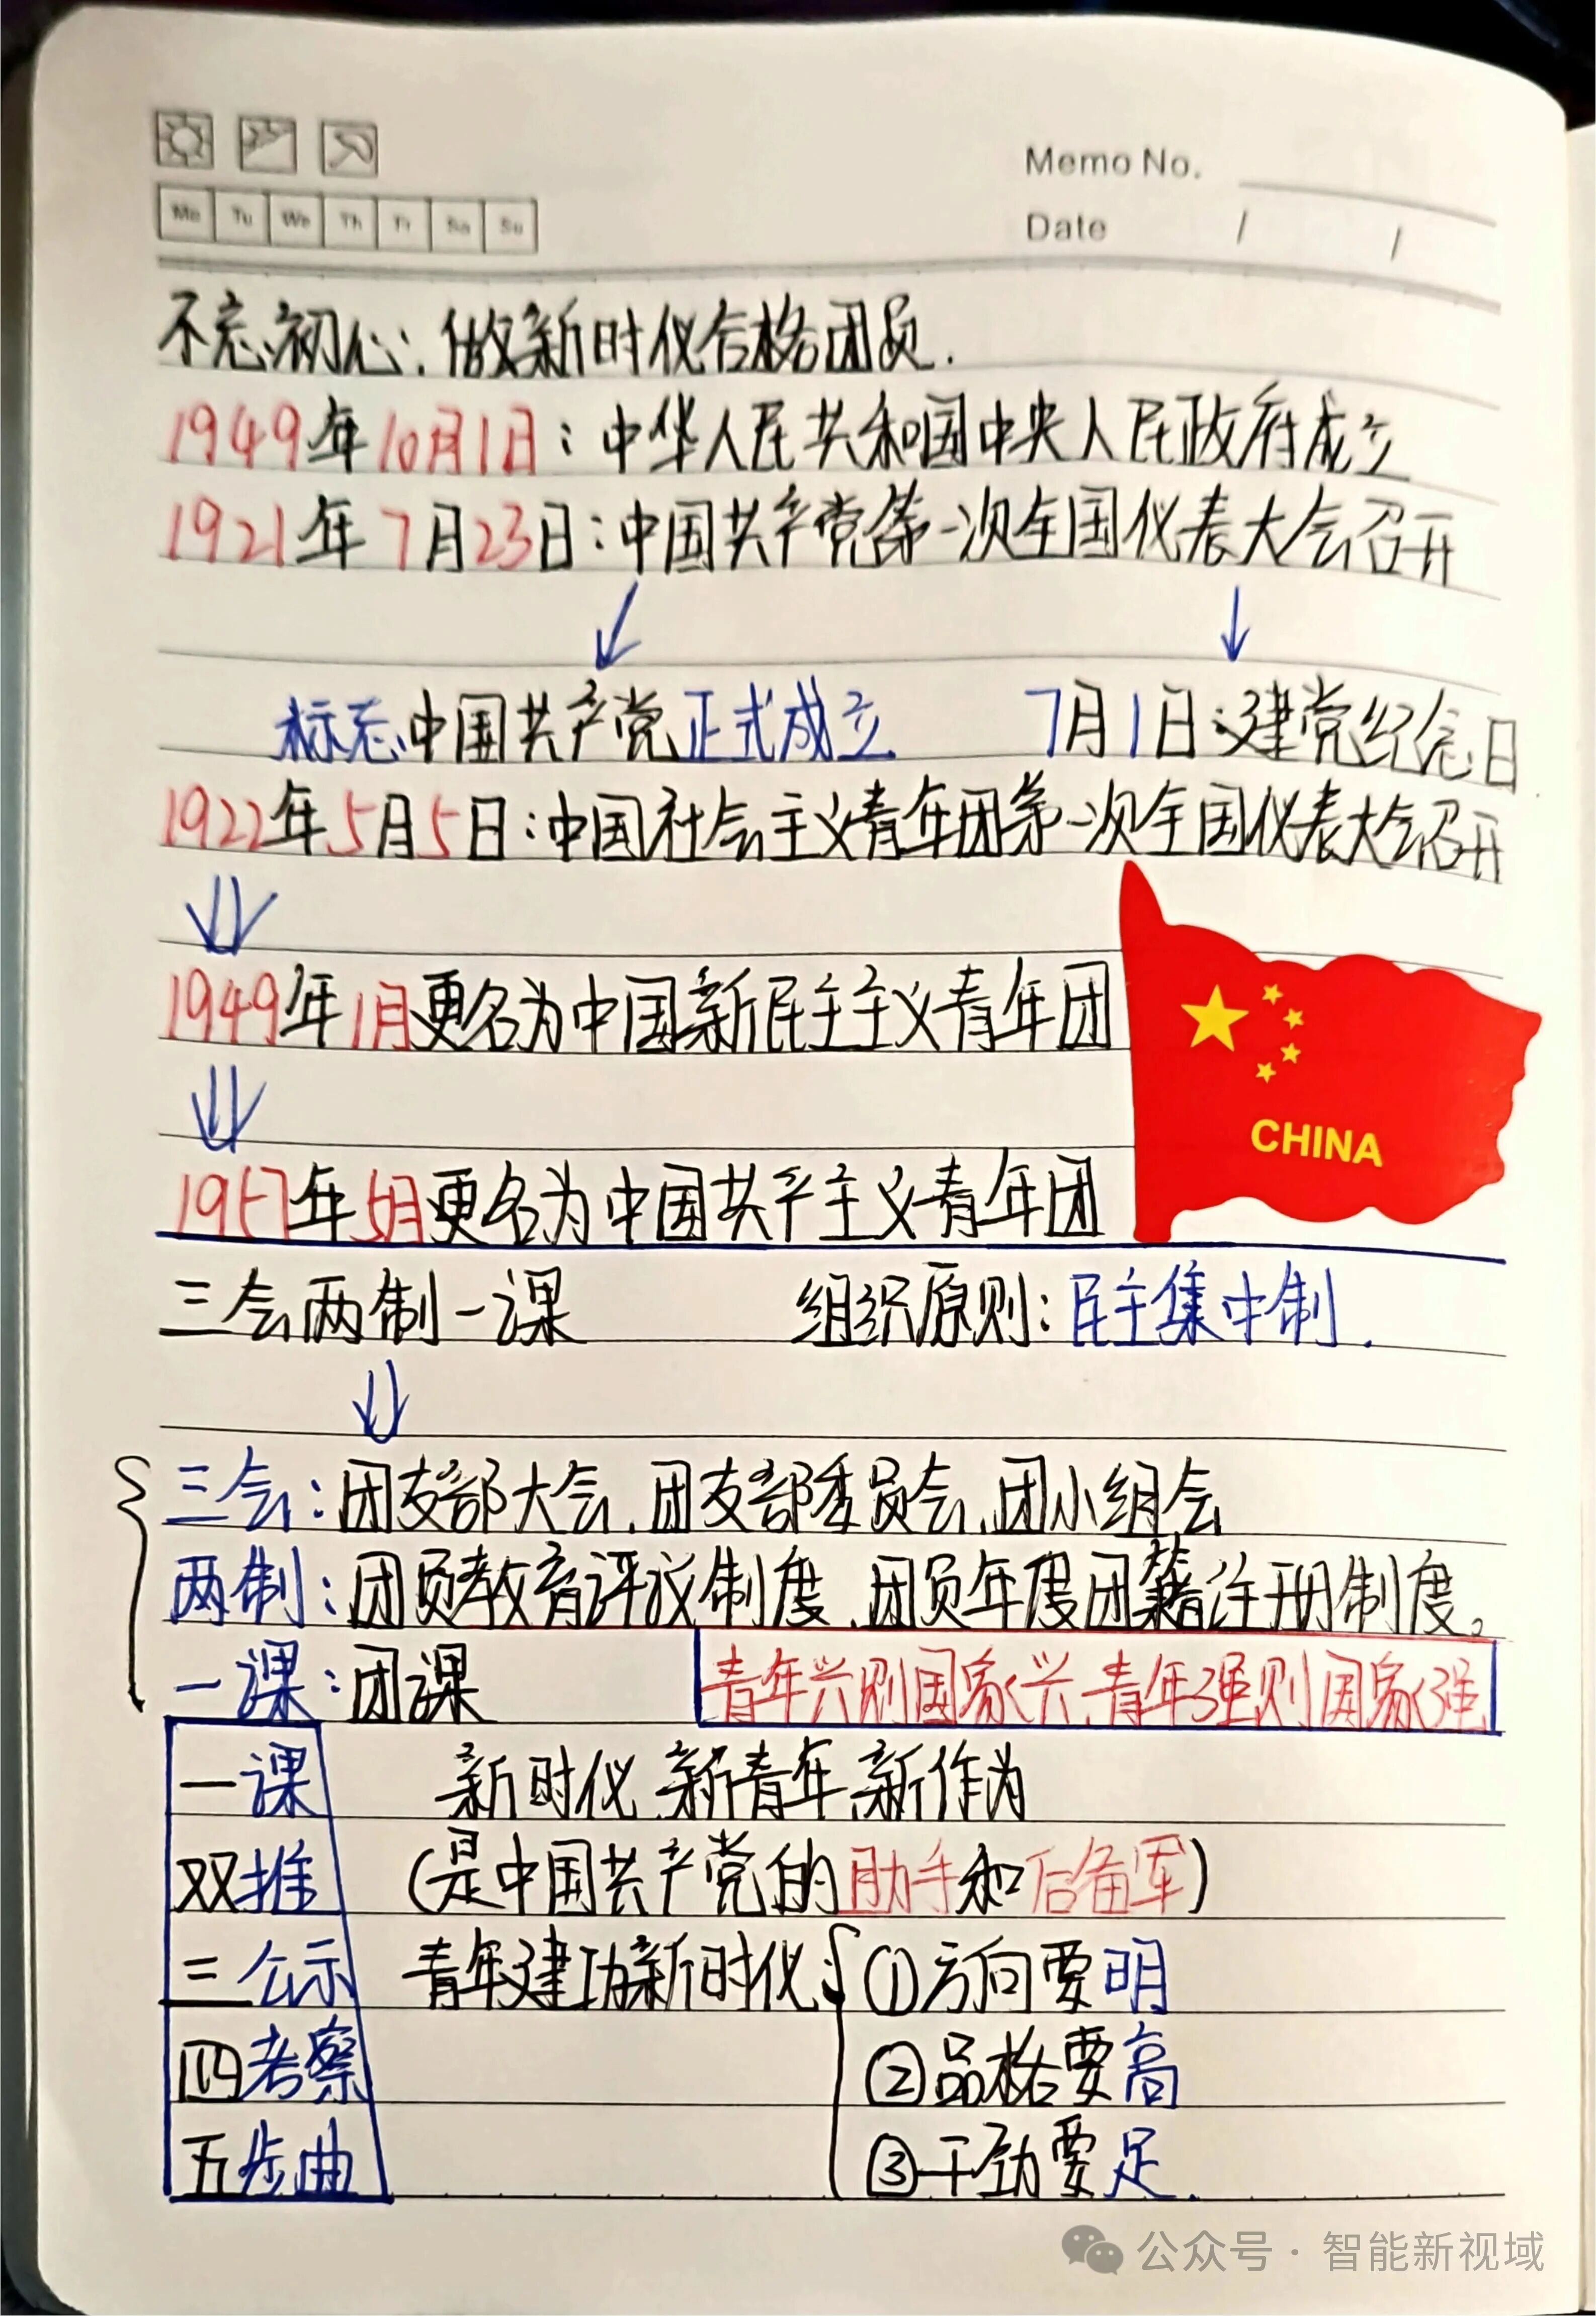 Memo No.
Mo Tu We Th Fr Sa Su
Date / /
不忘初心:做新时代合格团员.
1949年10月1日:中华人民共和国中央人民政府成立
1921年7月23日:中国共产党第一次全国代表大会召开
标志中国共产党正式成立 7月1日:建党纪念日
1922年5月5日:中国社会主义青年团第一次全国代表大会召开
1949年1月更名为中国新民主主义青年团
CHINA
1957年5月更名为中国共产主义青年团
三会两制一课 组织原则:民主集中制.
三会:团支部大会、团支部委员会、团小组会
两制:团员教育评议制度、团员年度团籍注册制度。
一课:团课 青年兴则国家兴,青年强则国家强
一课 新时代 新青年 新作为
双推 (是中国共产党的助手和后备军)
三公示 青年建功新时代: ①方向要明
四考察 ②品格要高
五步曲 ③干劲要足.
公众号·智能新视域